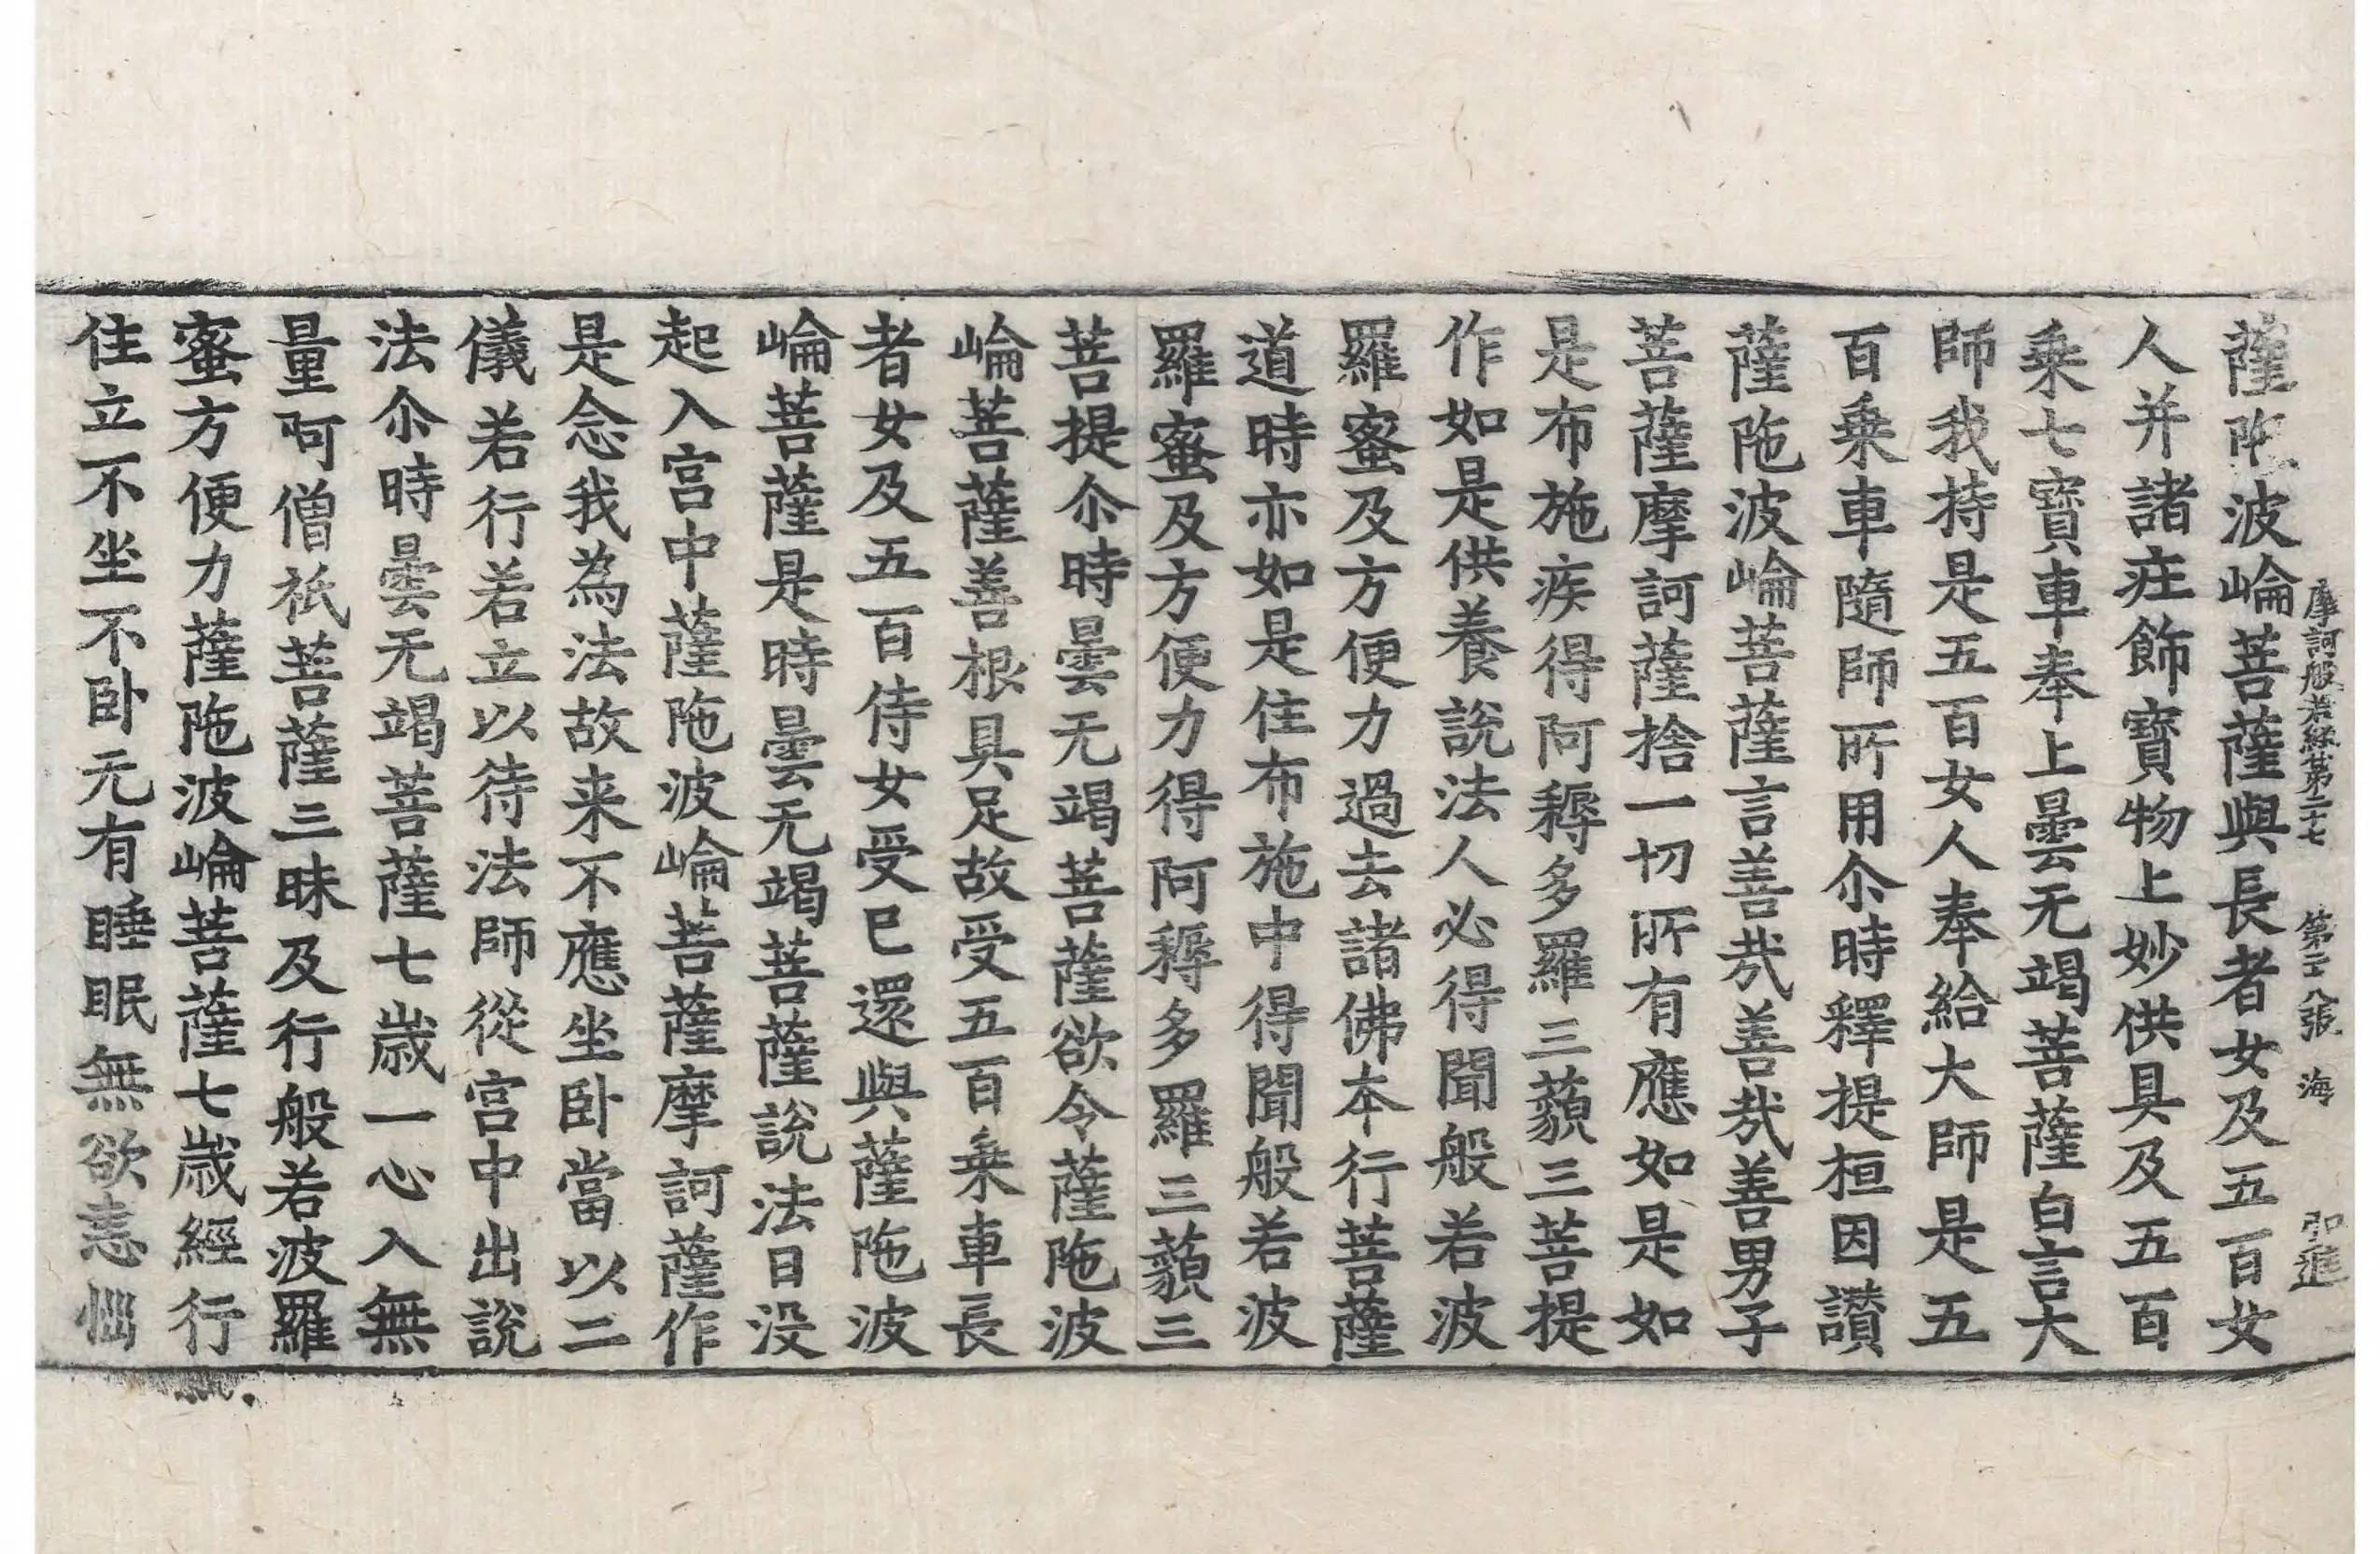 摩訶般若經第二十七　第二八張　海
薩陁波崘菩薩與長者女及五百女
人并諸疰飾寶物上妙供具及五百
乗七寶車奉上曇无竭菩薩白言大
師我持是五百女人奉給大師是五
百乗車隨師所用尒時釋提桓因讃
薩陁波崘菩薩言善㢤善㢤善男子
菩薩摩訶薩捨一切所有應如是如
是布施疾得阿耨多羅三藐三菩提
作如是供養說法人必得聞般若波
羅蜜及方便力過去諸佛本行菩薩
道時亦如是住布施中得聞般若波
羅蜜及方便力得阿耨多羅三藐三
菩提尒時曇无竭菩薩欲令薩陁波
崘菩薩善根具足故受五百乗車長
者女及五百侍女受已還與薩陁波
崘菩薩是時曇无竭菩薩說法日没
起入宫中薩陁波崘菩薩摩訶薩作
是念我為法故来不應坐卧當以二
儀若行若立以待法師從宫中出說
法尒時曇无竭菩薩七歲一心入無
量阿僧祇菩薩三昧及行般若波羅
蜜方便力薩陁波崘菩薩七歲經行
住立不坐不卧无有睡眠無欲恚惱